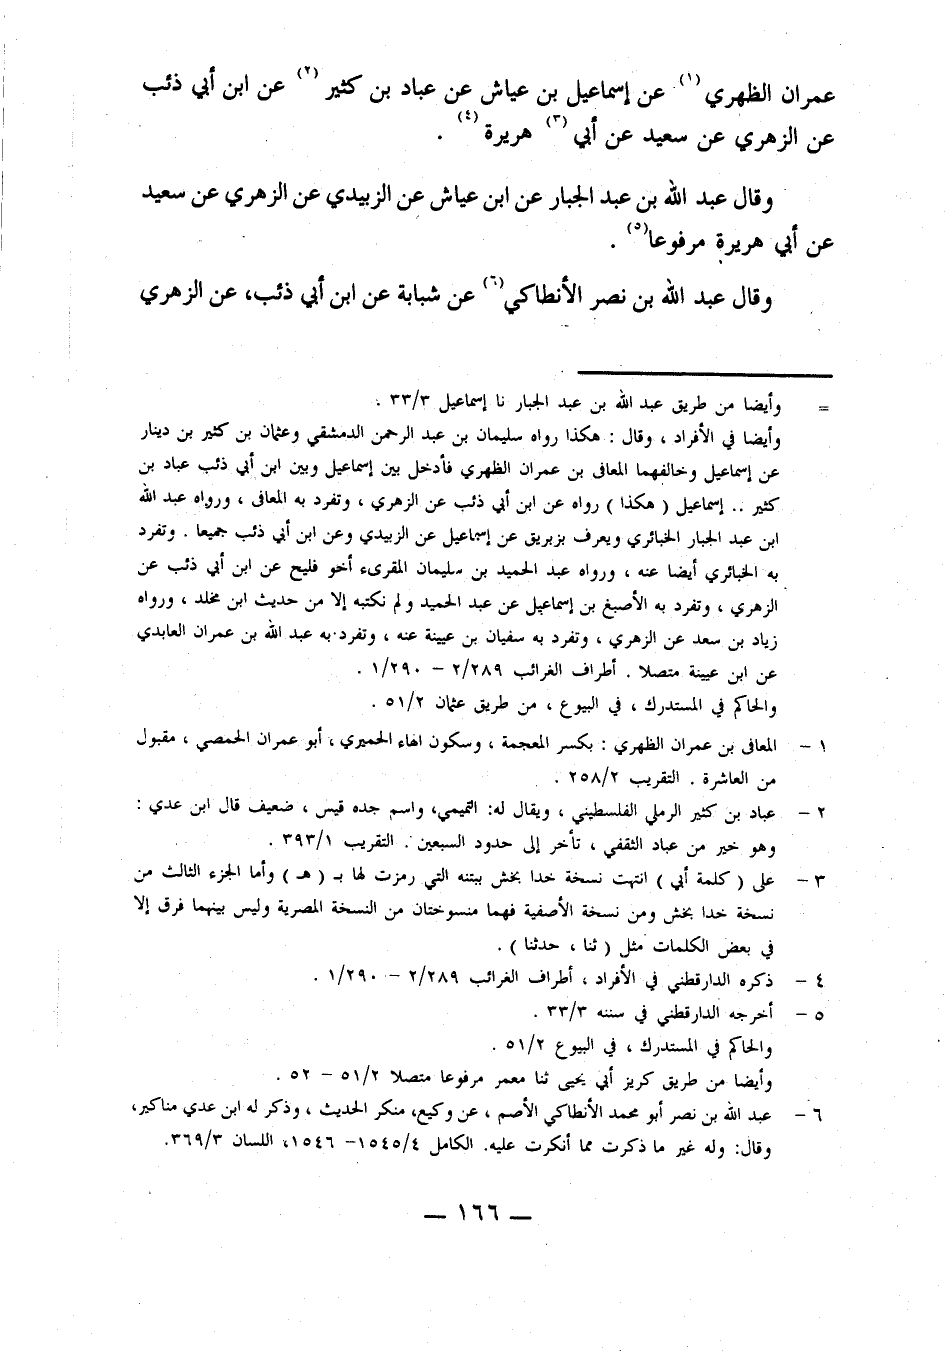 عمران الظهري (١) عن إسماعيل بن عياش عن عباد بن كثير (٢) عن ابن أبي ذئب
عن الزهري عن سعيد عن أبي (٣) هريرة (٤) .
وقال عبد الله بن عبد الجبار عن ابن عياش عن الزبيدي عن الزهري عن سعيد
عن أبي هريرة مرفوعا (٥) .
وقال عبد الله بن نصر الأنطاكي (٦) عن شبابة عن ابن أبي ذئب، عن الزهري
= وأيضا من طريق عبد الله بن عبد الجبار نا إسماعيل ٣٣/٣ .
وأيضا في الأفراد ، وقال : هكذا رواه سليمان بن عبد الرحمن الدمشقي وعثمان بن كثير بن دينار
عن إسماعيل وخالفهما المعافى بن عمران الظهري فأدخل بين إسماعيل وبين ابن أبي ذئب عباد بن
كثير .. إسماعيل ( هكذا ) رواه عن ابن أبي ذئب عن الزهري ، وتفرد به المعافى ، ورواه عبد الله
ابن عبد الجبار الخبائري ويعرف بزبريق عن إسماعيل عن الزبيدي وعن ابن أبي ذئب جميعا . وتفرد
به الخبائري أيضا عنه ، ورواه عبد الحميد بن سليمان المقرىء أخو فليح عن ابن أبي ذئب عن
الزهري ، وتفرد به الأصبغ بن إسماعيل عن عبد الحميد ولم نكتبه إلا من حديث ابن مخلد ، ورواه
زياد بن سعد عن الزهري ، وتفرد به سفيان بن عيينة عنه ، وتفرد به عبد الله بن عمران العابدي
عن ابن عيينة متصلا . أطراف الغرائب ٢/٢٨٩ – ١/٢٩٠ .
والحاكم في المستدرك ، في البيوع ، من طريق عثمان ٥١/٢ .
١ – المعافى بن عمران الظهري : بكسر المعجمة ، وسكون الهاء الحميري ، أبو عمران الحمصي ، مقبول
من العاشرة . التقريب ٢٥٨/٢ .
٢ – عباد بن كثير الرملي الفلسطيني ، ويقال له: التميمي، واسم جده قيس ، ضعيف قال ابن عدي :
وهو خير من عباد الثقفي ، تأخر إلى حدود السبعين . التقريب ٣٩٣/١ .
٣ – على ( كلمة أبي ) انتهت نسخة خدا بخش ببتنه التي رمزت لها بـ ( هـ ) وأما الجزء الثالث من
نسخة خدا بخش ومن نسخة الأصفية فهما منسوختان من النسخة المصرية وليس بينهما فرق إلا
في بعض الكلمات مثل ( ثنا ، حدثنا ) .
٤ – ذكره الدارقطني في الأفراد ، أطراف الغرائب ٢/٢٨٩ – ١/٢٩٠ .
٥ – أخرجه الدارقطني في سننه ٣٣/٣ .
والحاكم في المستدرك ، في البيوع ٥١/٢ .
وأيضا من طريق كريز أبي يحيى ثنا معمر مرفوعا متصلا ٥١/٢ – ٥٢ .
٦ – عبد الله بن نصر أبو محمد الأنطاكي الأصم ، عن وكيع، منكر الحديث ، وذكر له ابن عدي مناكير،
وقال: وله غير ما ذكرت مما أنكرت عليه. الكامل ١٥٤٥/٤– ١٥٤٦، اللسان ٣٦٩/٣.
— ١٦٦ —